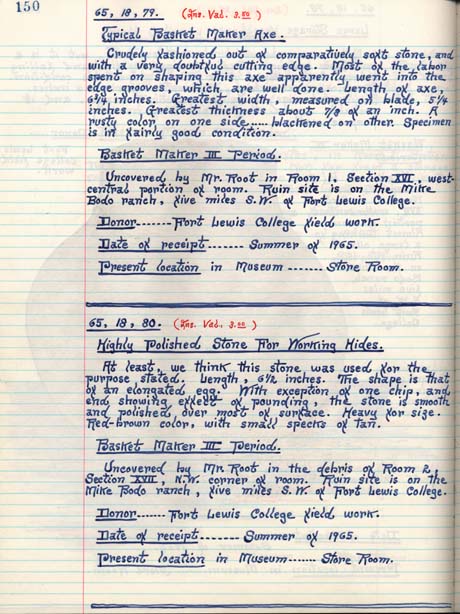 150
65, 18, 79. (Ins. Val. 3.00)
Typical Basket Maker Axe.
Crudely fashioned, out of comparatively soft stone, and
with a very doubtful cutting edge. Most of the labor
spent on shaping this axe apparently went into the
edge grooves, which are well done. Length of axe,
6 1/4 inches. Greatest width, measured on blade, 5 1/4
inches. Greatest thickness about 7/8 of an inch. A
rusty color on one side..... blackened on other. Specimen
is in fairly good condition.
Basket Maker III Period.
Uncovered by Mr. Root in Room 1, Section XVI, west-
central portion of room. Ruin site is on the Mike
Bodo ranch, five miles S.W. of Fort Lewis College.
Donor------Fort Lewis College field work.
Date of receipt------- Summer of 1965.
Present location in Museum ------- Store Room.
65, 18, 80. (Ins. Val. 3.00)
Highly Polished Stone For Working Hides.
At least, we think this stone was used for the
purpose stated. Length, 6 1/2 inches. The shape is that
of an elongated egg. With exception of one chip, and
end showing effect of pounding, the stone is smooth
and polished over most of surface. Heavy for size.
Red-brown color, with small specks of tan.
Basket Maker III Period.
Uncovered by Mr. Root in the debris of Room 2,
Section XVII, N.W. corner of room. Ruin site is on the
Mike Bodo ranch, five miles S.W. of Fort Lewis College.
Donor------- Fort Lewis College field work.
Date of receipt------- Summer of 1965.
Present location in Museum------- Store Room.